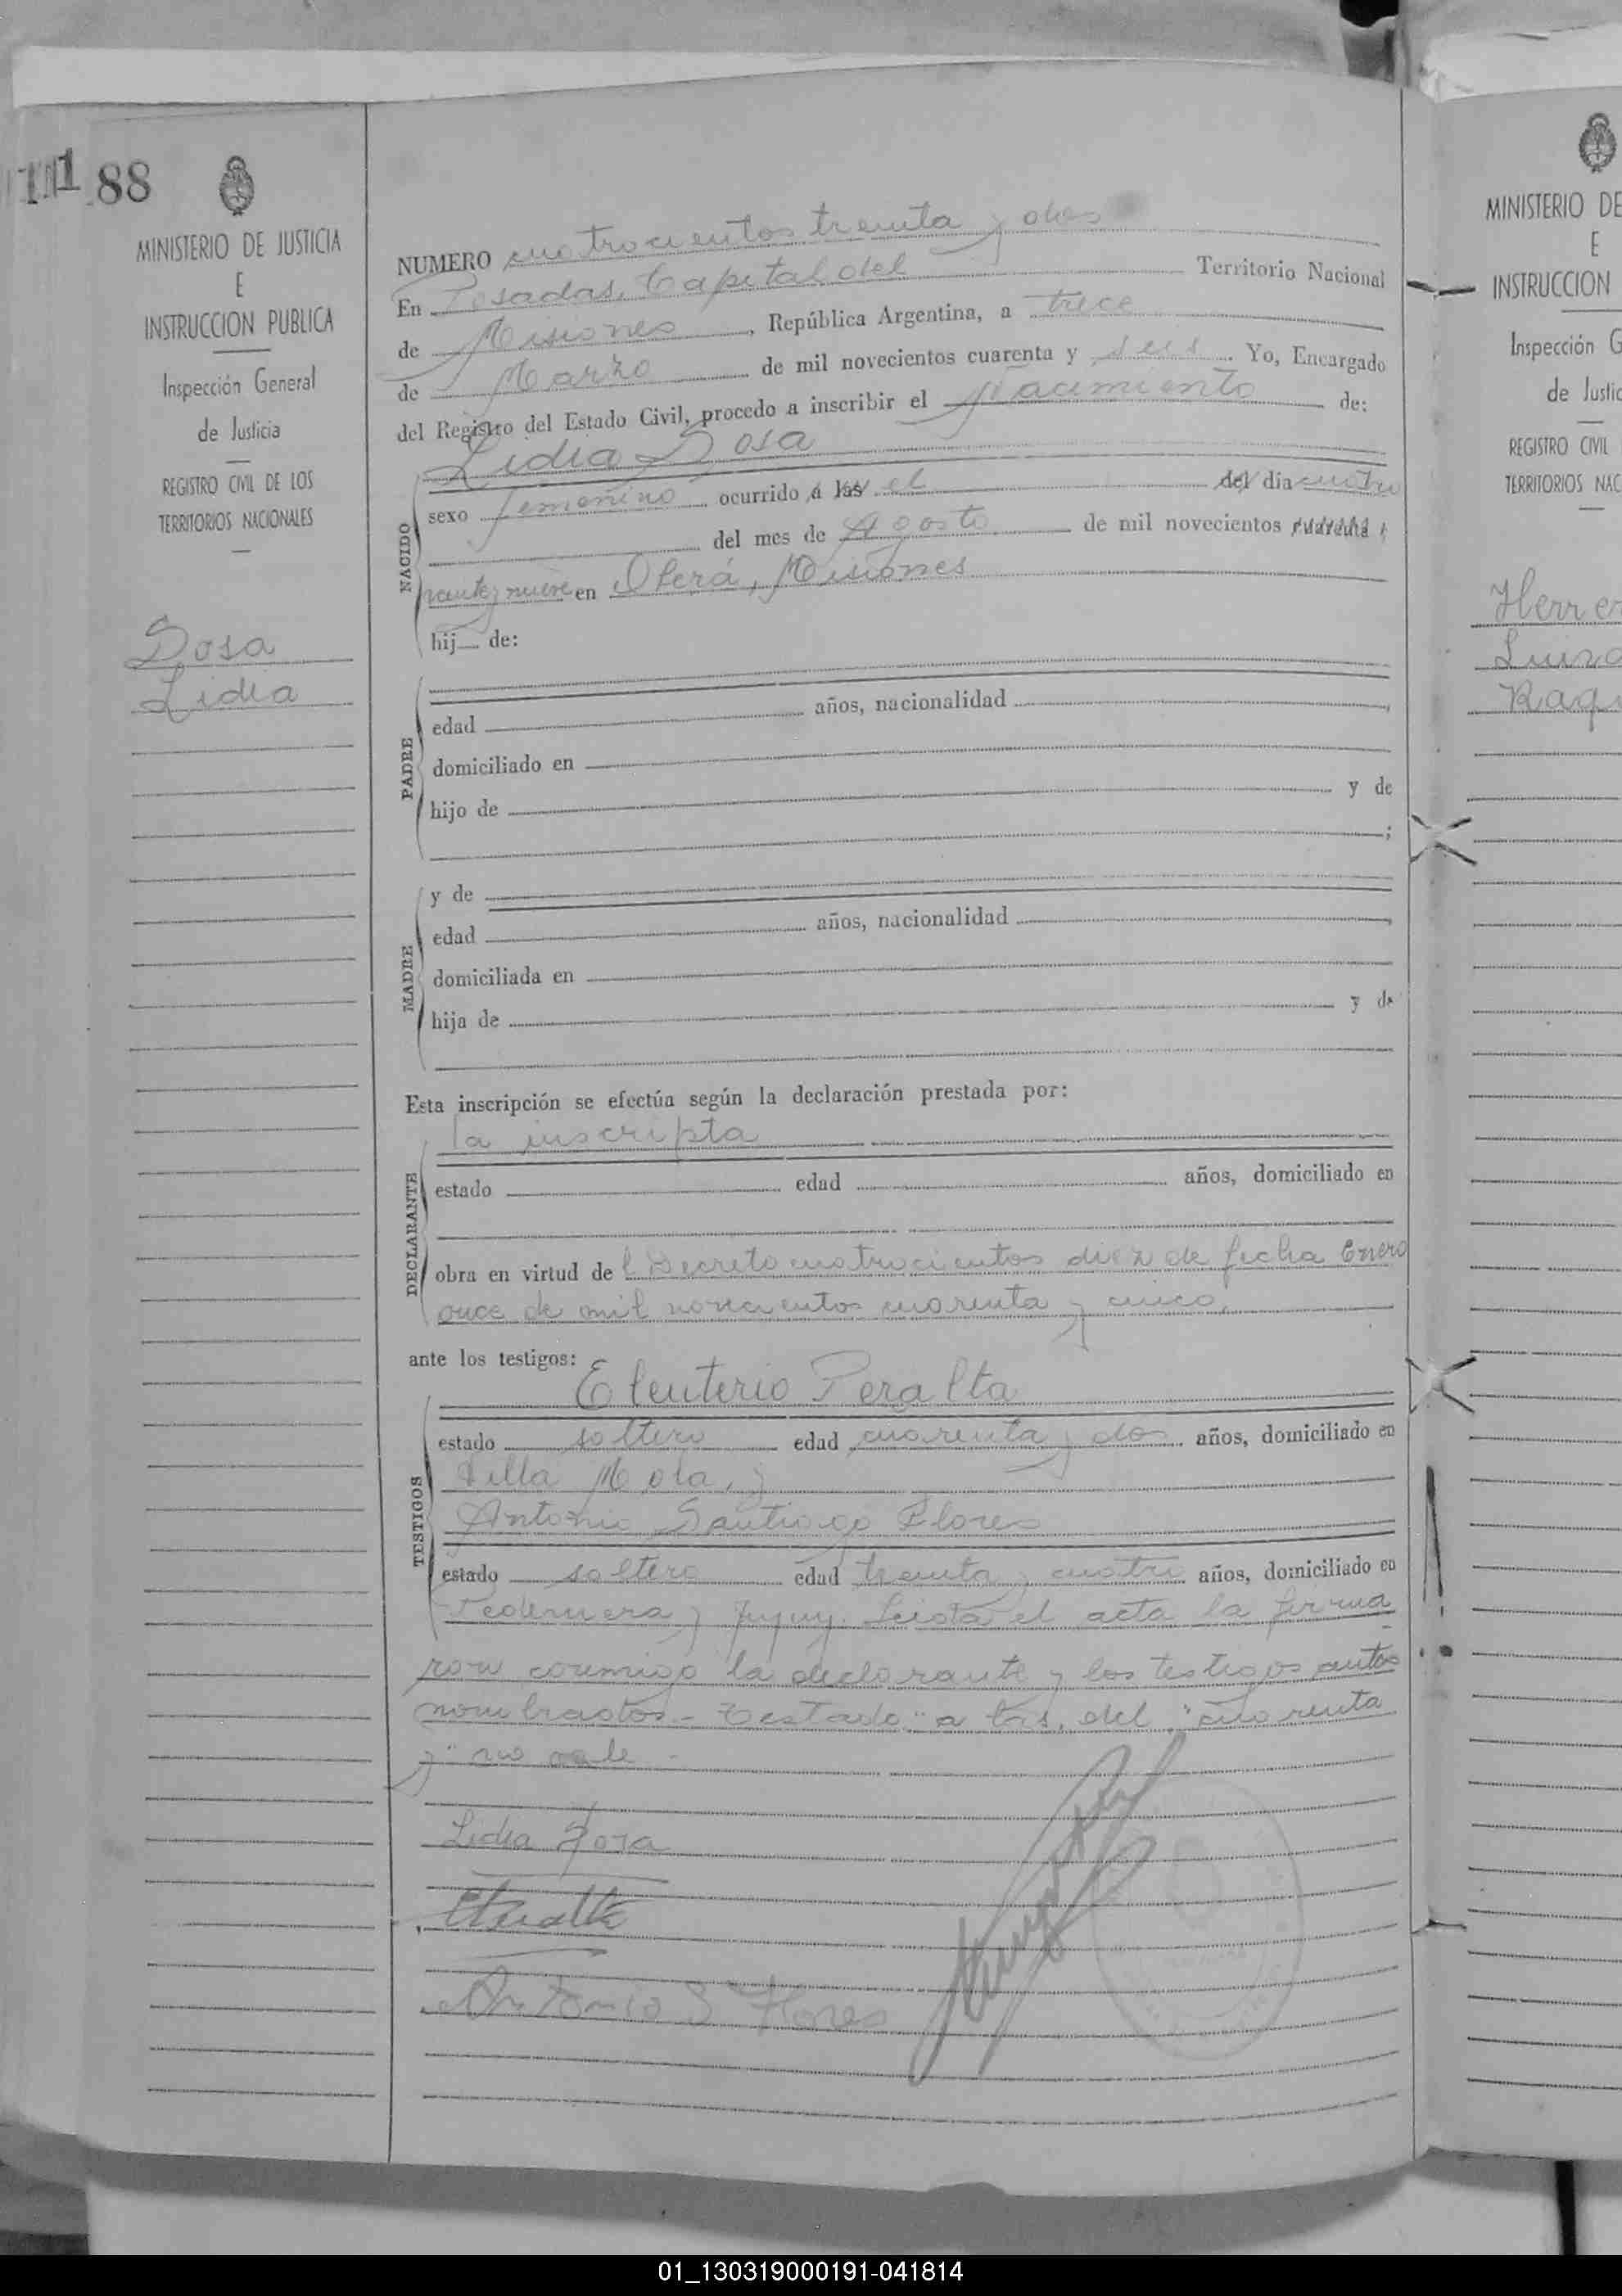 88
MINISTERIO DE JUSTICIA
E
INSTRUCCION PUBLICA
Inspección General
de Justicia
REGISTRO CIVIL DE LOS
TERRITORIOS NACIONALES
Sosa
Lidia
NUMERO cuatrocientos treinta y dos
En Posadas, Capital del Territorio Nacional
de Misiones, República Argentina, a trece
de Marzo de mil novecientos cuarenta y seis. Yo, Encargado
del Registro del Estado Civil, procedo a inscribir el Nacimiento de:
Lidia Sosa
NACIDO
sexo femenino ocurrido a las el del dia cuatro
del mes de Agosto de mil novecientos cuarenta y
nueve en Oberá, Misiones
hij de:
PADRE
edad años, nacionalidad
domiciliado en
hijo de y de
;
MADRE
y de
edad años, nacionalidad
domiciliada en
hija de y de
Esta inscripción se efectúa según la declaración prestada por:
la inscripta
DECLARANTE
estado edad años, domiciliado en
obra en virtud del Decreto cuatrocientos diez de fecha Enero
once de mil novecientos cuarenta y cinco.
ante los testigos:
Eleuterio Peralta
TESTIGOS
estado soltero edad cuarenta y dos años, domiciliado en
Villa Mola, y
Antonio Santiago Flores
estado soltero edad treinta y cuatro años, domiciliado en
Pedernera y Jujuy. Leida el acta la firma
ron conmigo la declarante y los testigos antes
nombrados.- Testado: "a las, del, "cuarenta
y" no vale.-
Lidia Sosa
EPeralta
Antonio S Flores
MINISTERIO DE
E
INSTRUCCION
Inspección G
de Justic
REGISTRO CIVIL
TERRITORIOS NAC
Herrer
Luisa
Raq
01_130319000191-041814